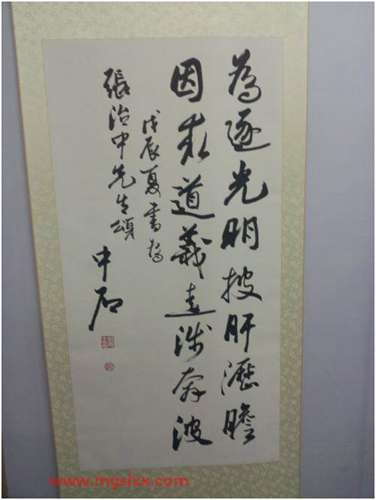 為逐光明披肝瀝膽
因求道義遠涉奔波
戊辰夏書為
張治中先生頌
中石